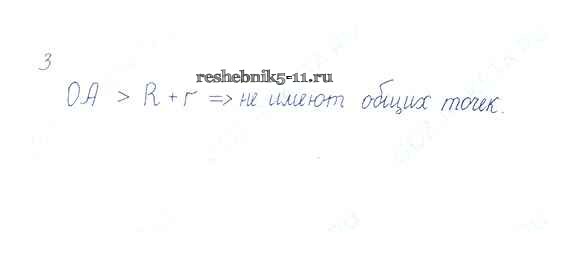 3
reshebnik5-11.ru
OA > R + r => не имеют общих точек.